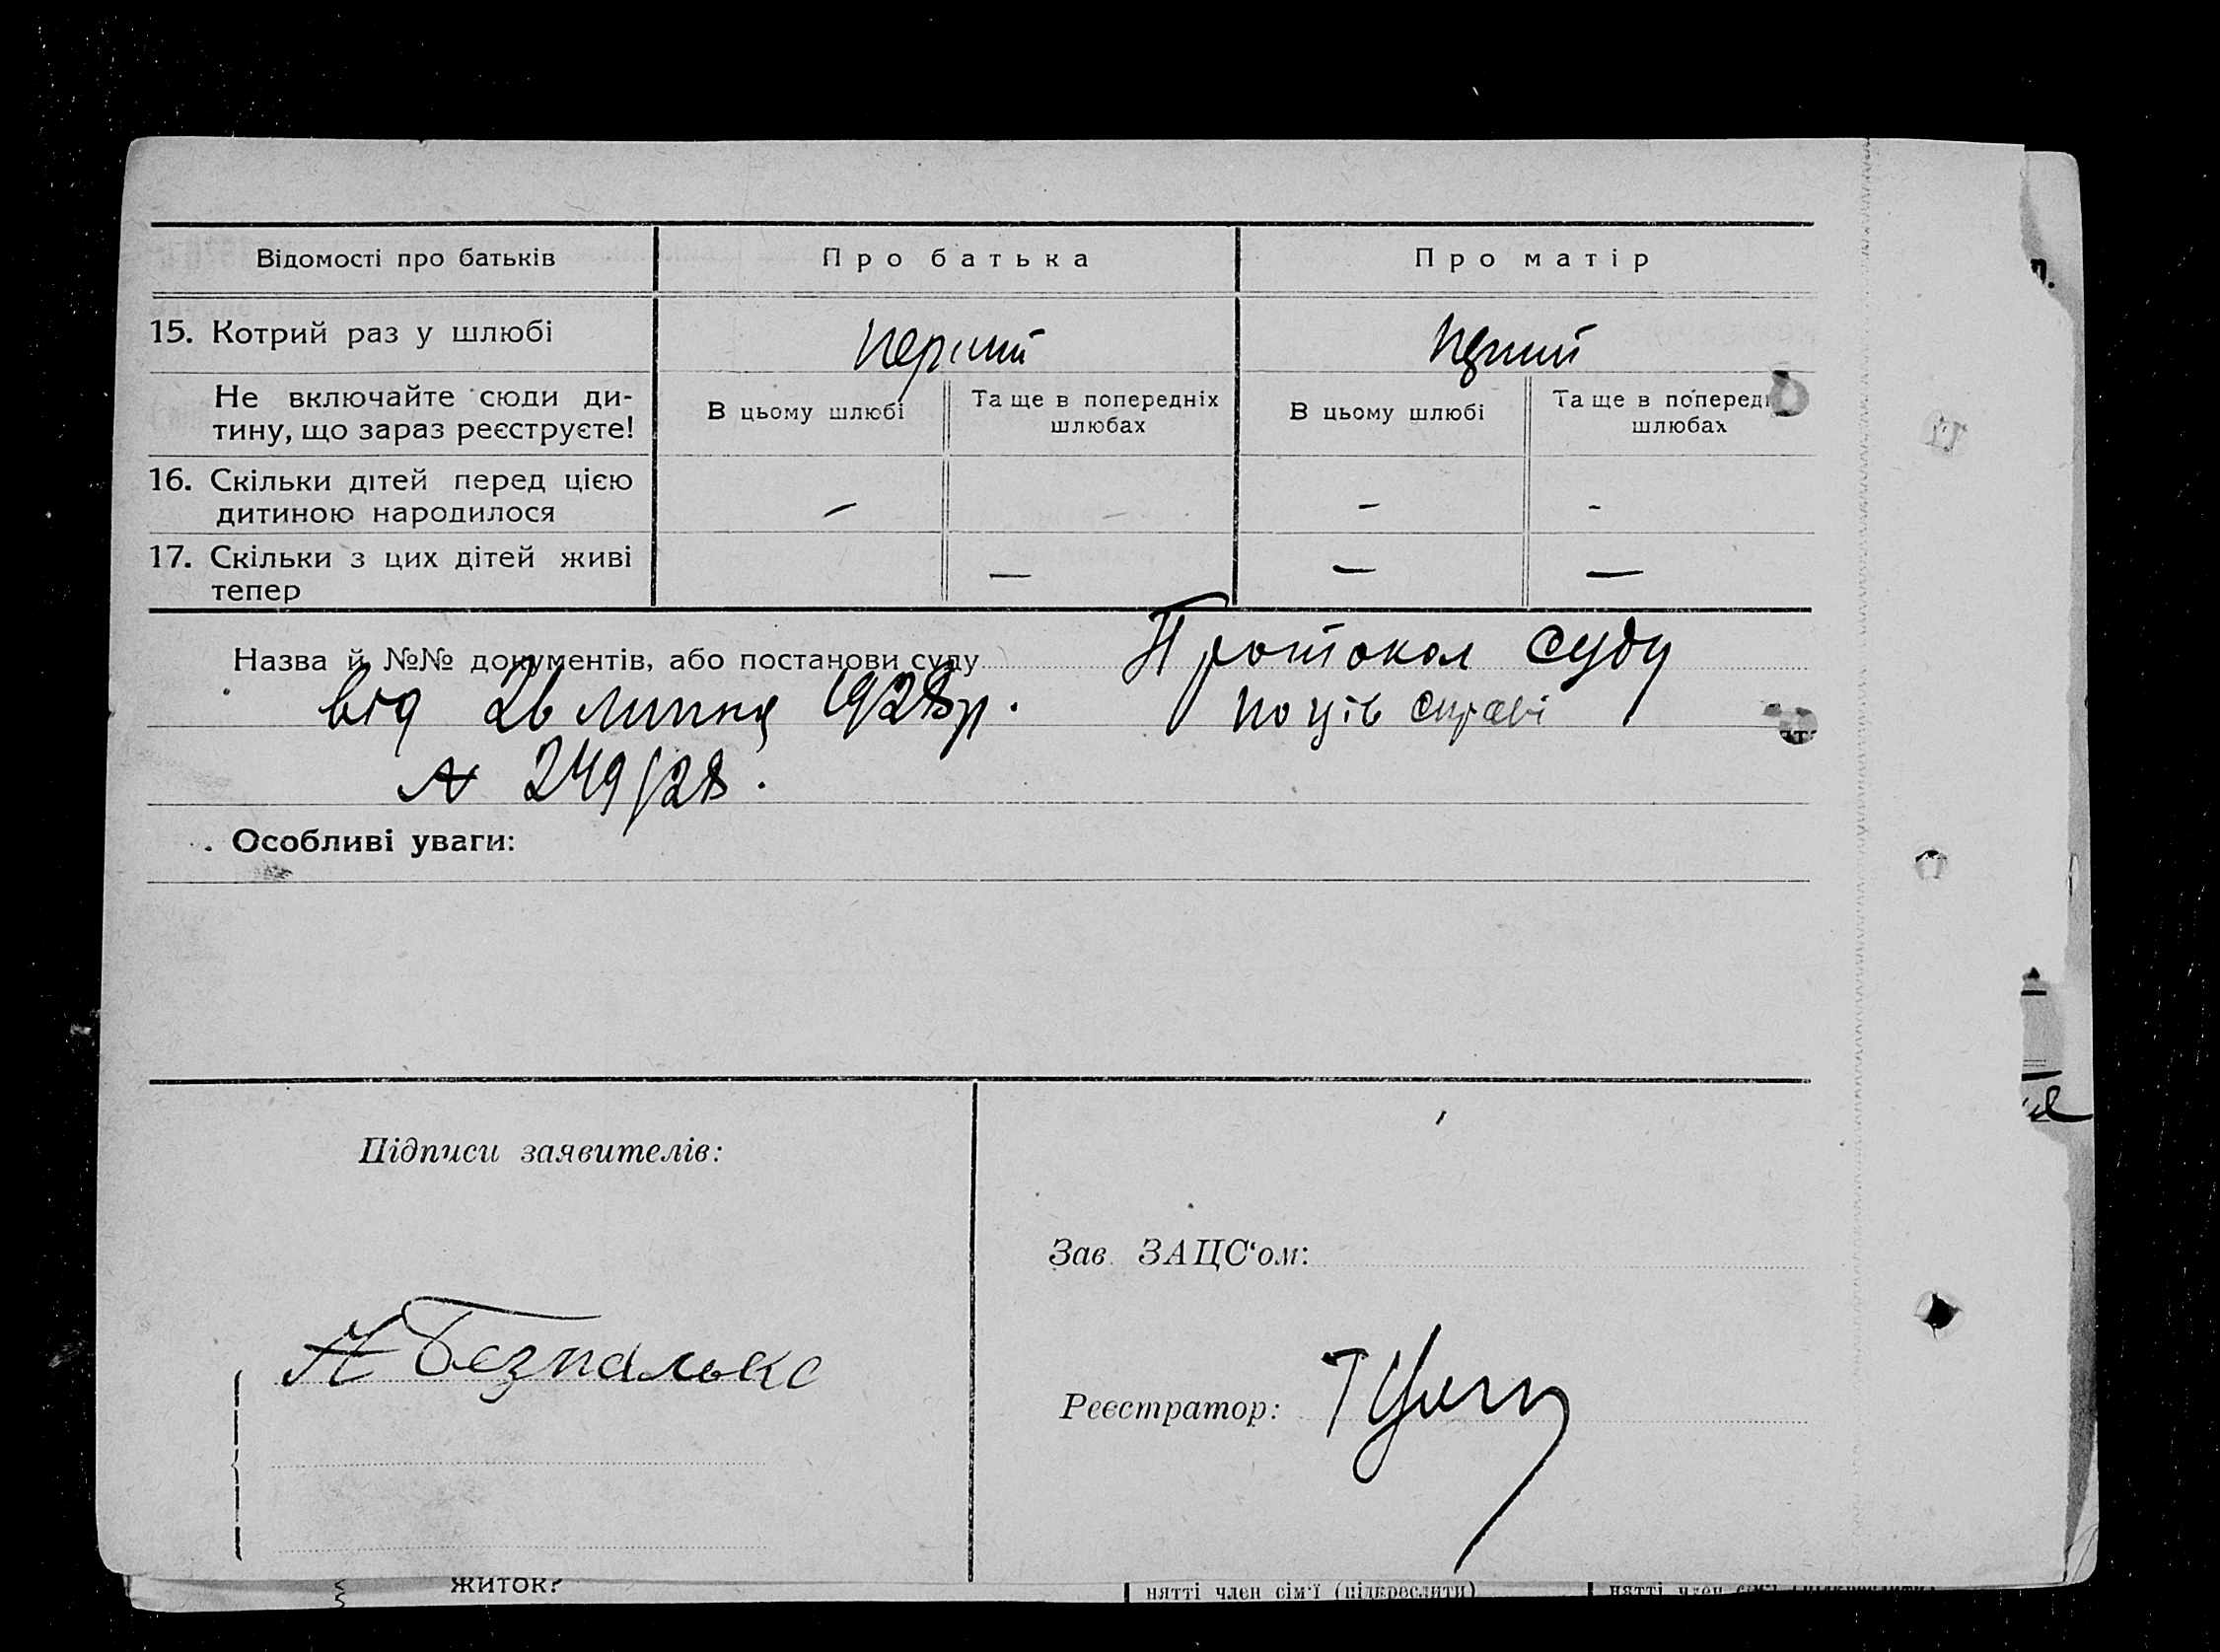 Відомості про батьків Про батька Про матір
15. Котрий раз у шлюбі перший перший
Не включайте сюди ди-
тину, що зараз реєструєте!
В цьому шлюбі Та ще в попередніх
шлюбах
В цьому шлюбі Та ще в поперед
шлюбах
16. Скільки дітей перед цією
дитиною народилося - - - -
17. Скільки з цих дітей живі
тепер — — —
Назва й №№ документів, або постанови суду Протокол суду
від 26 липня 1928 р. по ців справі
№ 249/28.
Особливі уваги:
Підписи заявителів:
Зав. ЗАЦС'ом:
Н Безпалько
Реєстратор:
житок?
нятті член сім'ї (підкреслити)
нятті член сім'ї (підкреслити)